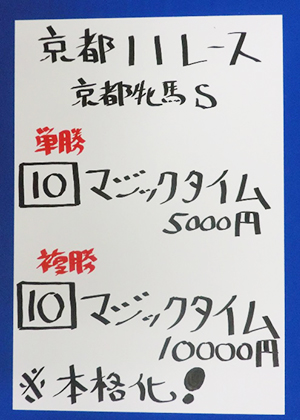 京都11レース
京都牝馬S
単勝
10 マジックタイム
5000円
複勝
10 マジックタイム
10000円
※本格化!